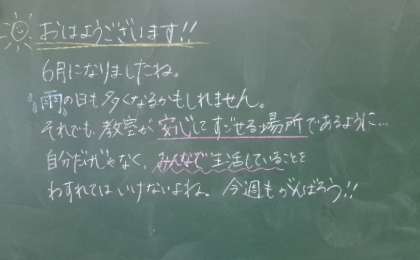 おはようございます!!
6月になりましたね。
雨の日も多くなるかもしれません。
それでも、教室が安心してすごせる場所であるように…
自分だけじゃなく、みんなで生活していることを
わすれてはいけないよね。今週もがんばろう!!